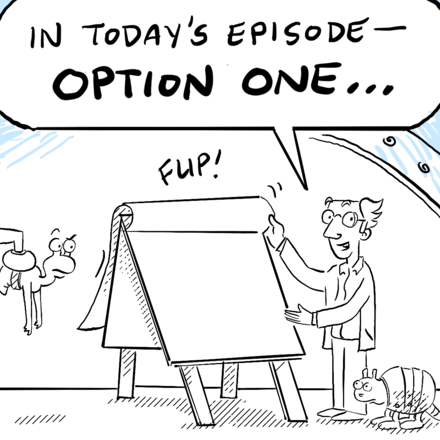 IN TODAY'S EPISODE—
OPTION ONE...
FLIP!